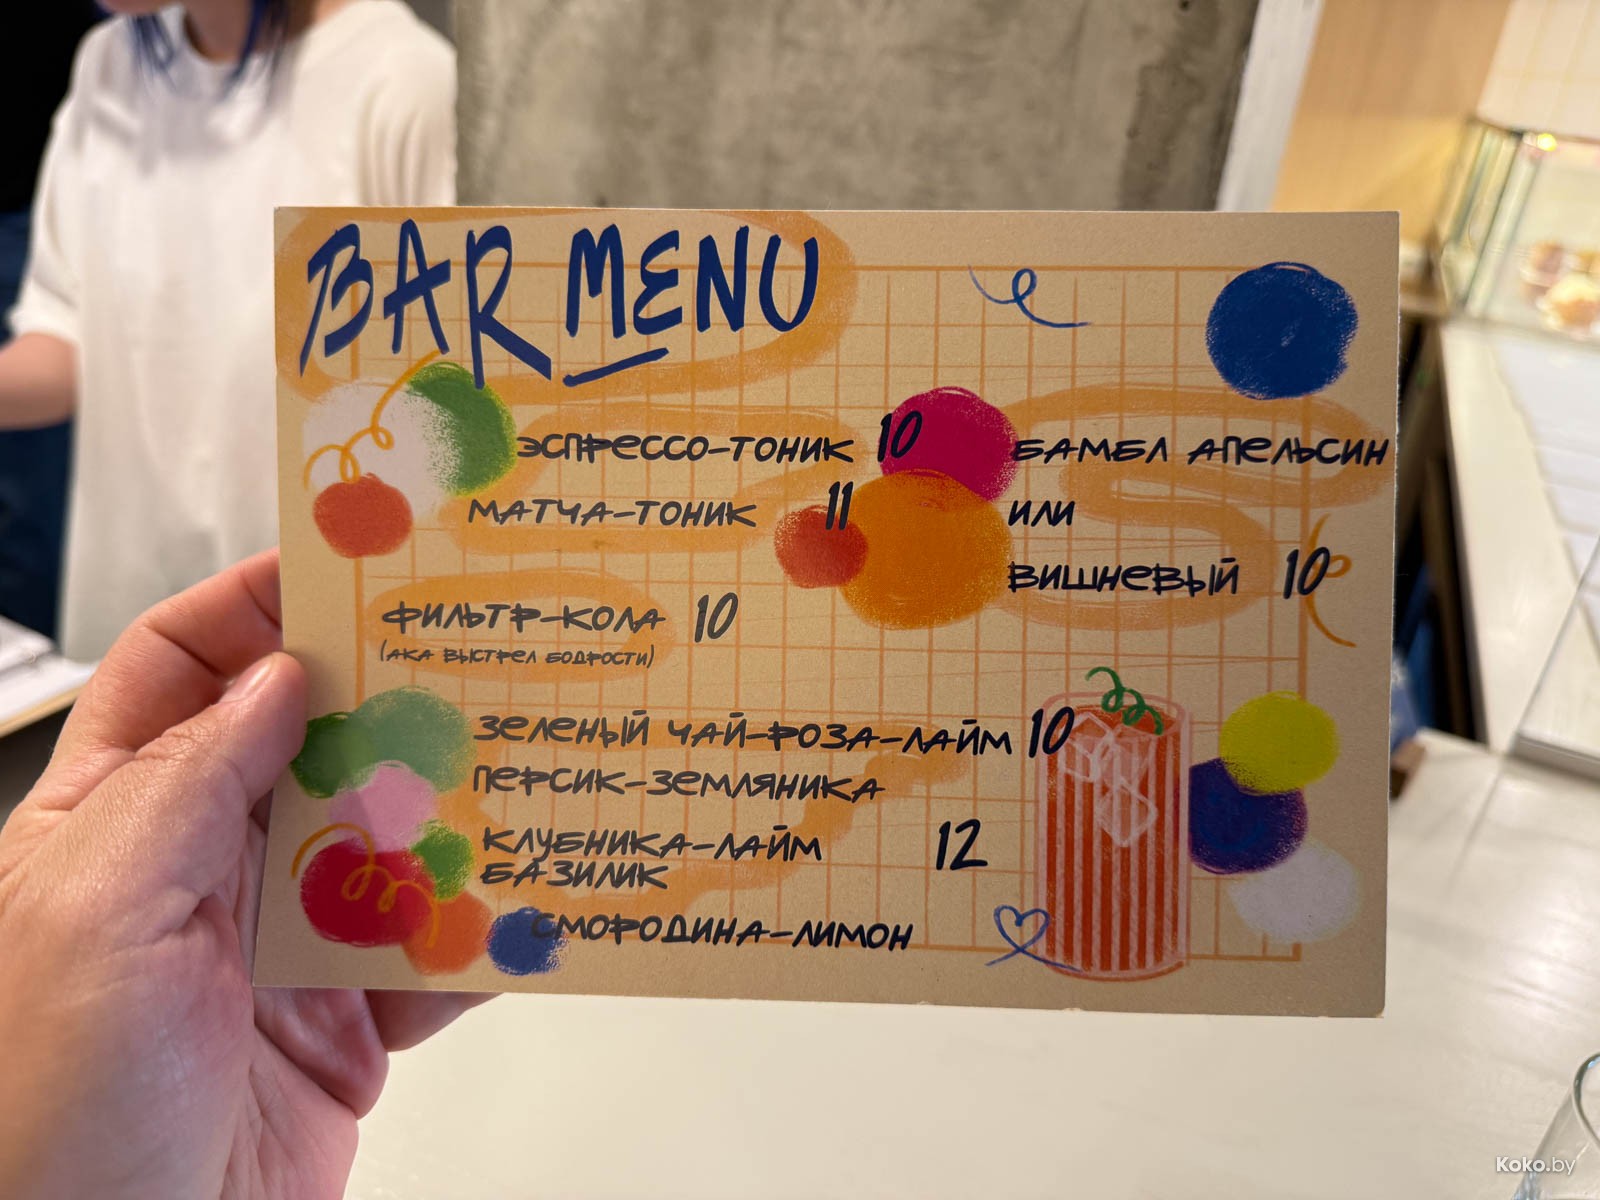 BAR MENU
ЭСПРЕССО-ТОНИК 10
МАТЧА-ТОНИК 11
БАМБЛ АПЕЛЬСИН
ИЛИ
ВИШНЕВЫЙ 10
ФИЛЬТР-КОЛА 10
(АКА ВЫСТРЕЛ БОДРОСТИ)
ЗЕЛЕНЫЙ ЧАЙ-РОЗА-ЛАЙМ 10
ПЕРСИК-ЗЕМЛЯНИКА
КЛУБНИКА-ЛАЙМ 12
БАЗИЛИК
СМОРОДИНА-ЛИМОН
Koko.by